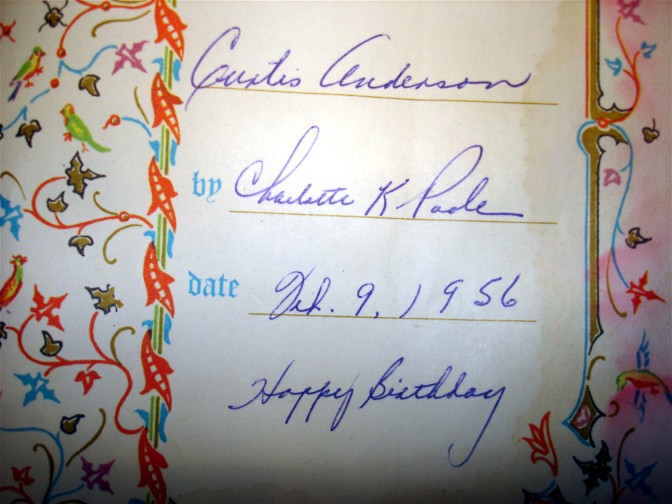 Curtis Anderson
by Charlotte K
date Feb. 9, 1956
Happy Birthday